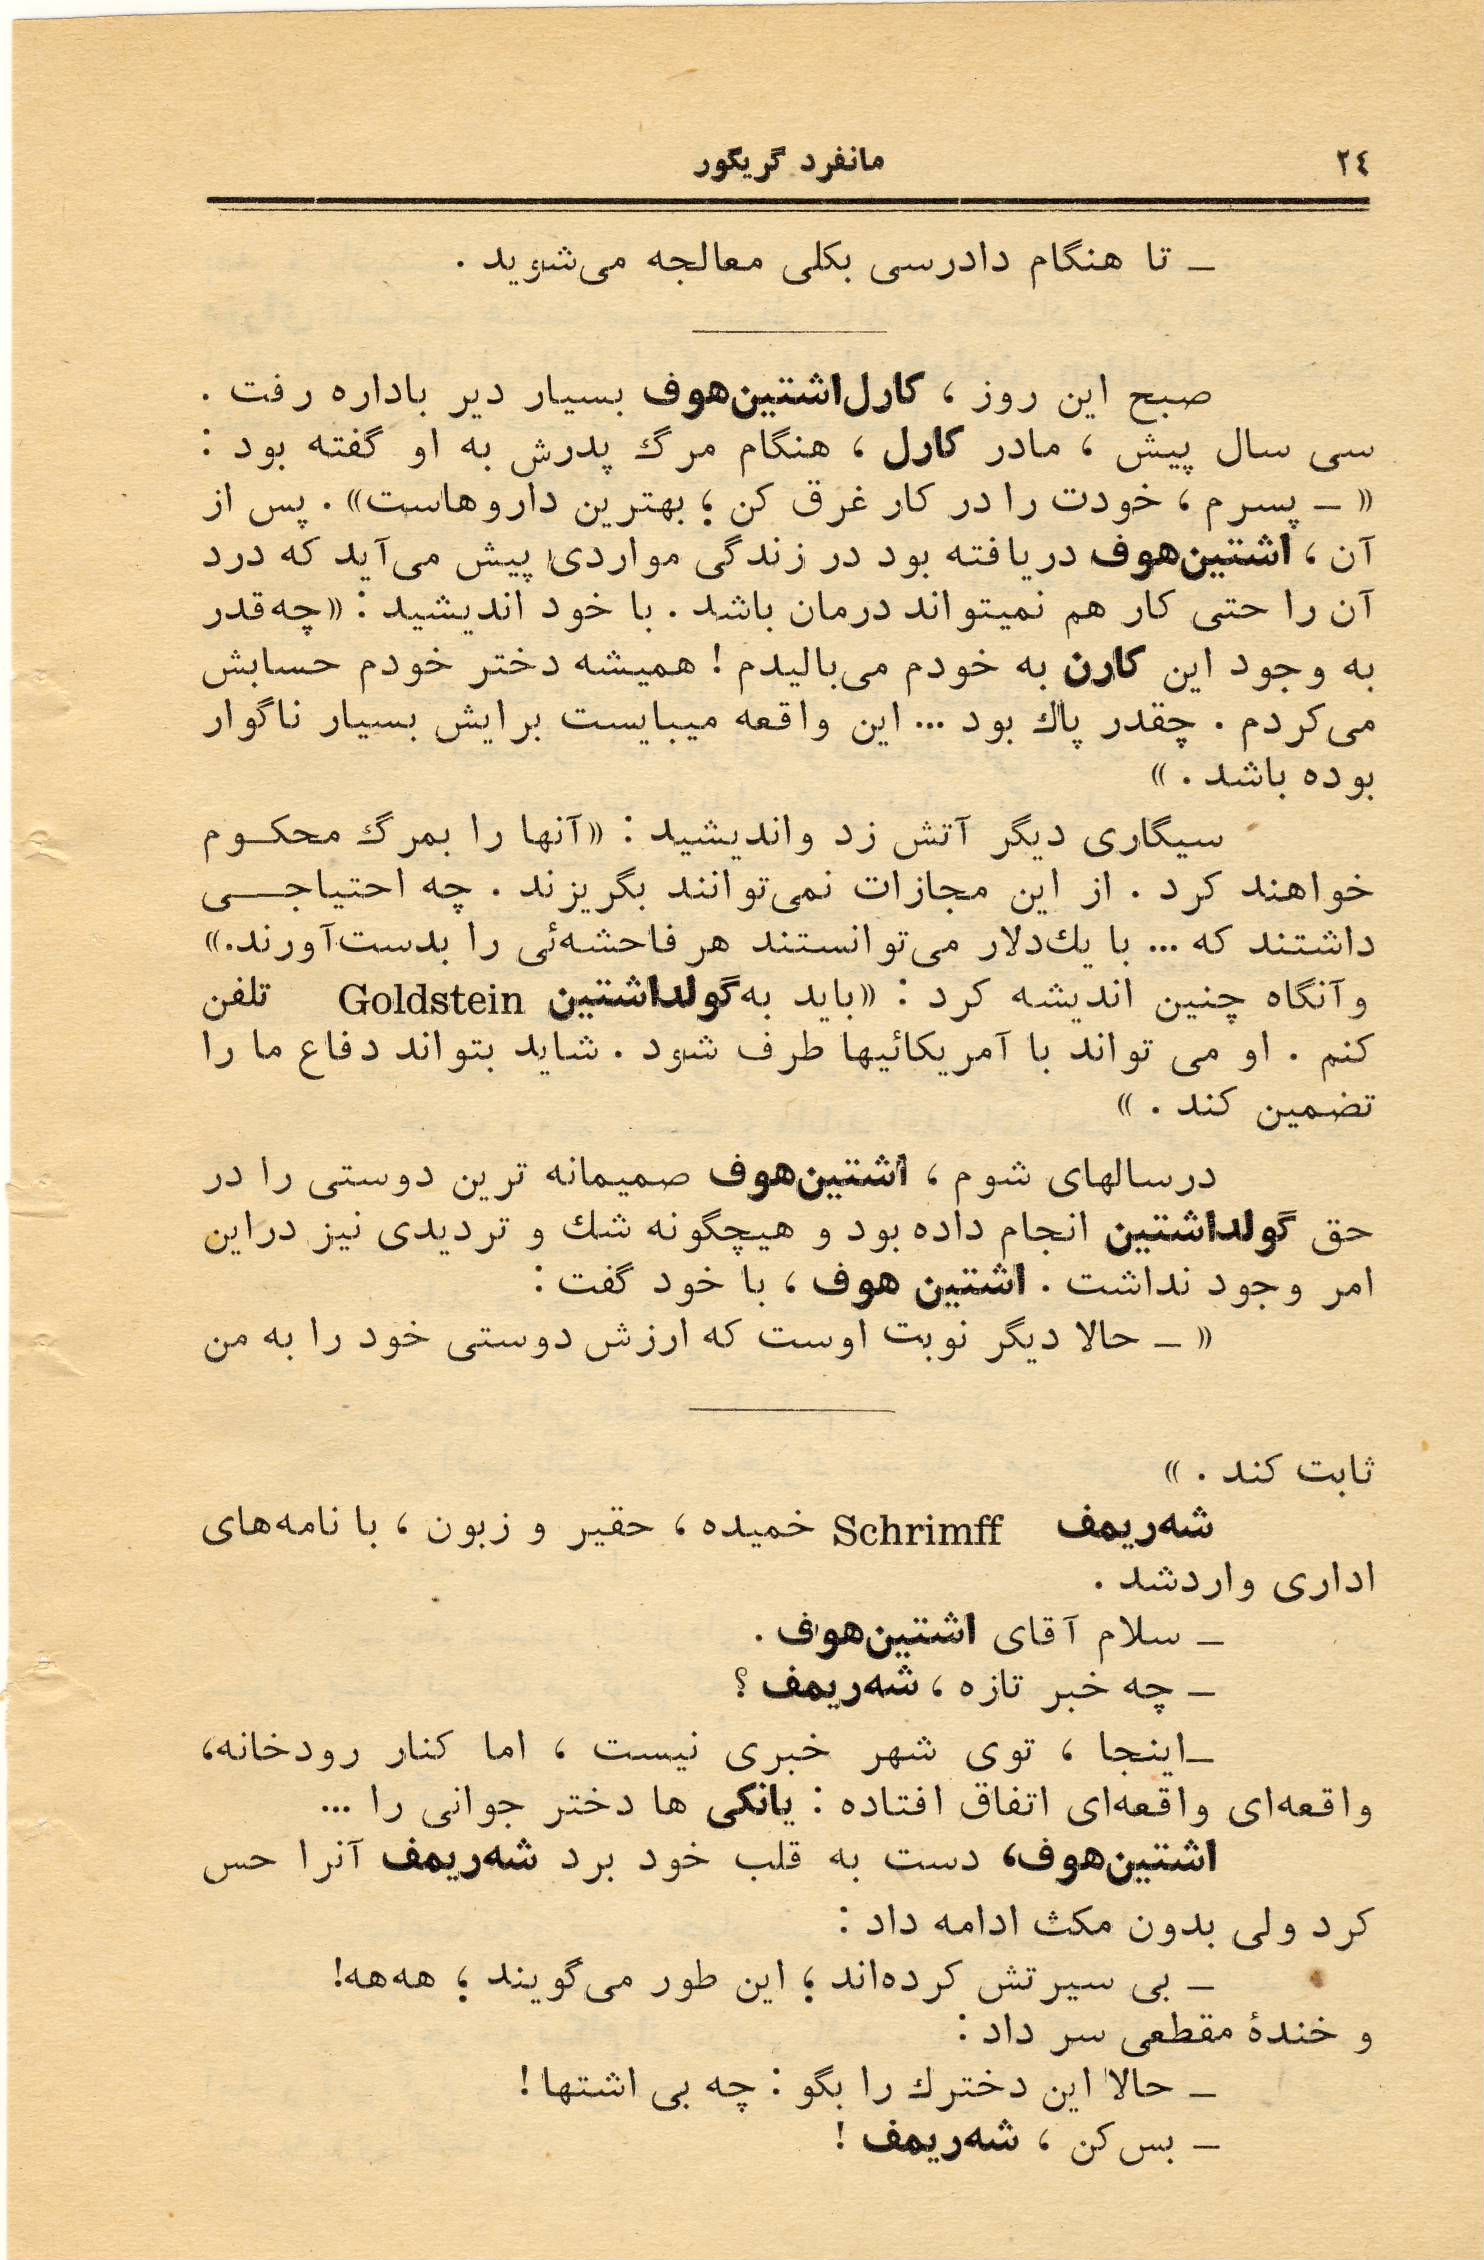 ٢٤
مانفرد گریگور
ـ تا هنگام دادرسی بکلی معالجه می‌شوید .
صبح این روز ، کارل‌اشتین‌هوف بسیار دیر باداره رفت .
سی سال پیش ، مادر کارل ، هنگام مرگ پدرش به او گفته بود :
«ـ پسرم ، خودت را در کار غرق کن ؛ بهترین داروهاست» . پس از
آن ، اشتین‌هوف دریافته بود در زندگی مواردی پیش می‌آید که درد
آن را حتی کار هم نمیتواند درمان باشد . با خود اندیشید : «چه‌قدر
به وجود این کارن به خودم می‌بالیدم ! همیشه دختر خودم حسابش
می‌کردم . چقدر پاك بود ... این واقعه میبایست برایش بسیار ناگوار
بوده باشد . »
سیگاری دیگر آتش زد واندیشید : «آنها را بمرگ محکـوم
خواهند کرد . از این مجازات نمی‌توانند بگریزند . چه احتیاجـــی
داشتند که ... با یك‌دلار می‌توانستند هر فاحشه‌ئی را بدست‌آورند.»
وآنگاه چنین اندیشه کرد : «باید به‌گولداشتین Goldstein تلفن
کنم . او می تواند با آمریکائیها طرف شود . شاید بتواند دفاع ما را
تضمین کند . »
درسالهای شوم ، اشتین‌هوف صمیمانه ترین دوستی را در
حق گولداشتین انجام داده بود و هیچگونه شك و تردیدی نیز دراین
امر وجود نداشت . اشتین هوف ، با خود گفت :
« ـ حالا دیگر نوبت اوست که ارزش دوستی خود را به من
ثابت کند . »
شه‌ریمف Schrimff خمیده ، حقیر و زبون ، با نامه‌های
اداری واردشد .
ـ سلام آقای اشتین‌هوف .
ـ چه خبر تازه ، شه‌ریمف ؟
ـاینجا ، توی شهر خبری نیست ، اما کنار رودخانه،
واقعه‌ای واقعه‌ای اتفاق افتاده : یانکی ها دختر جوانی را ...
اشتین‌هوف، دست به قلب خود برد شه‌ریمف آنرا حس
کرد ولی بدون مکث ادامه داد :
ـ بی سیرتش کرده‌اند ؛ این طور می‌گویند ؛ هه‌هه!
و خندۀ مقطعی سر داد :
ـ حالا این دخترك را بگو : چه بی اشتها !
ـ بس‌کن ، شه‌ریمف !